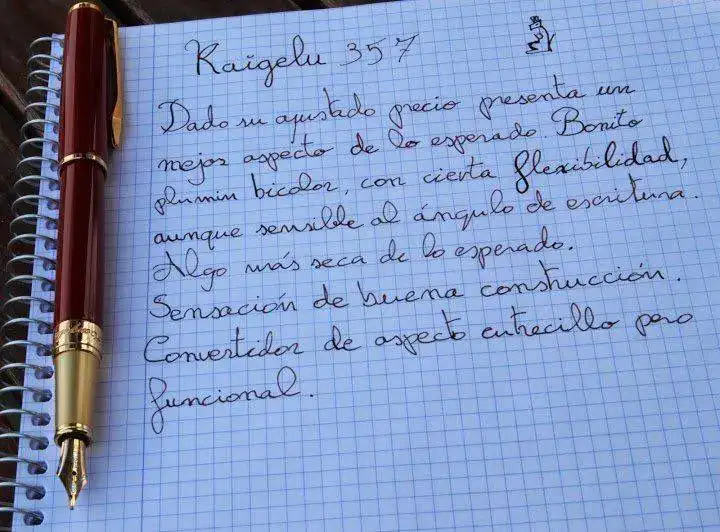 Kaigelu 357
Dado su ajustado precio presenta un
mejor aspecto de lo esperado. Bonito
plumin bicolor, con cierta flexibilidad,
aunque sensible al ángulo de escritura.
Algo más seca de lo esperado.
Sensación de buena construcción.
Convertidor de aspecto cutrecillo pero
funcional.